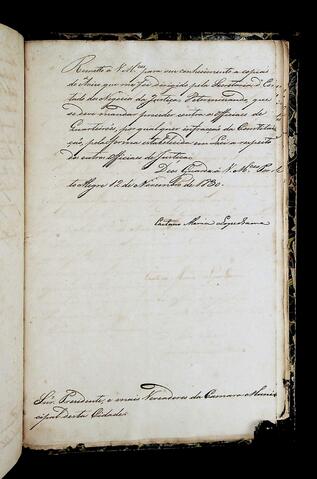 Remetto a V. M.ces para seu conhecimento a copia
do Aviso que me foi dirigido pela Secretaria d'Es-
tado dos Negocios da Justiça, determinando, que
se deve mandar proceder contra os Officiaes de
Quarteirão, por qualquer infracção da Constitui-
ção, pela forma estabelecida em Lei a respeito
dos outros Officiaes de Justiça.
Deos Guarde a V. M.ces Por-
to Alegre 12 de Novembro de 1830.
Caetano Maria Lopes Gama
Snr. Presidente, e mais Vereadores da Camara Muni-
cipal desta Cidade.